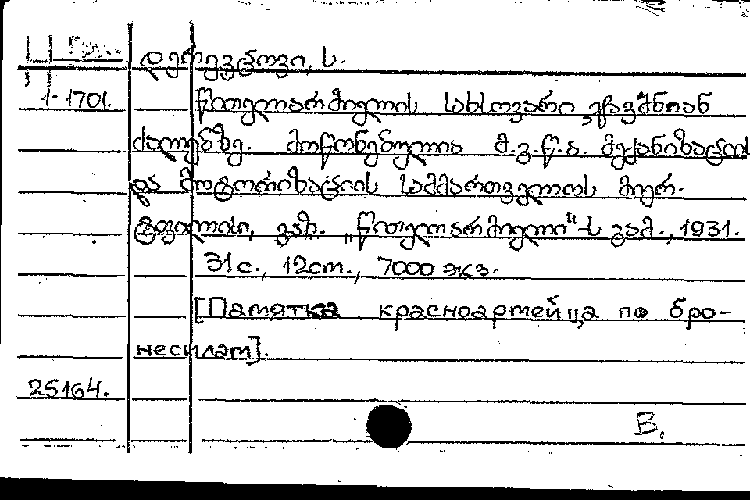 დერევცოვი, ს.
1-1701.
წითელარმიელის სახსოვარი ჯავშნიან
ძალებზე. მოწონებულია მ.გ.წ.ა. მექანიზაციის
და მოტორიზაციის სამმართველოს მიერ.
ტფილისი, გაზ. „წითელარმიელი"-ს გამ., 1931.
31с., 12cm., 7000 экз.
[Памятка красноармейца по бро-
несилам].
25164.
В.